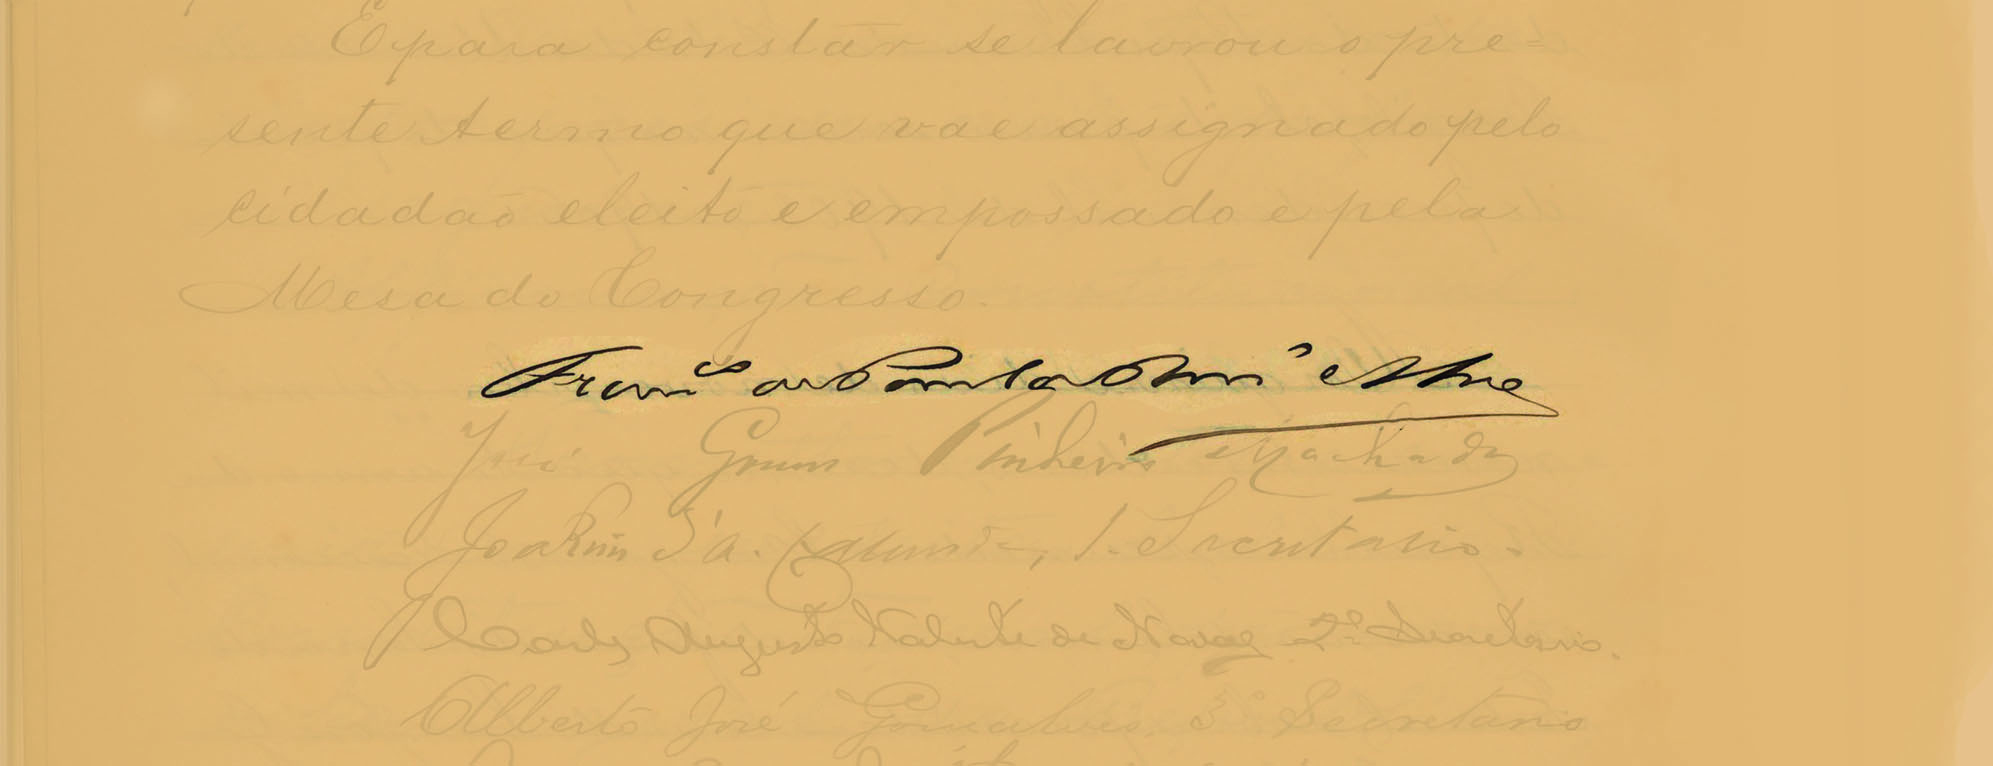 E para constar se lavrou o pre=
sente termo que vae assignado pelo
cidadão eleito e empossado e pela
Mesa do Congresso.
Fran.co de Paula Roiz' e Alves
José Gomes Pinheiro Machado
Joakim d'A. Catunda, 1. Secretario.
Carlos Augusto Valente de Novaes 2º Secretario.
Alberto José Gonçalves, 3º Secretario